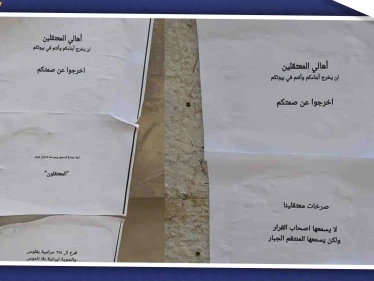 أهالي المعتقلين
لن يخرج أبناءكم وأنتم في بيوتكم
اخرجوا عن صمتكم
"المعتقلون"
فرع ال ٢١٥ حرامية بفلوس
والحرية ايرانية بلا ناموس
أهالي المعتقلين
لن يخرج أبناءكم وأنتم في بيوتكم
اخرجوا عن صمتكم
صرخات معتقلينا
لا يسمعها اصحاب القرار
ولكن يسمعها المنتقم الجبار